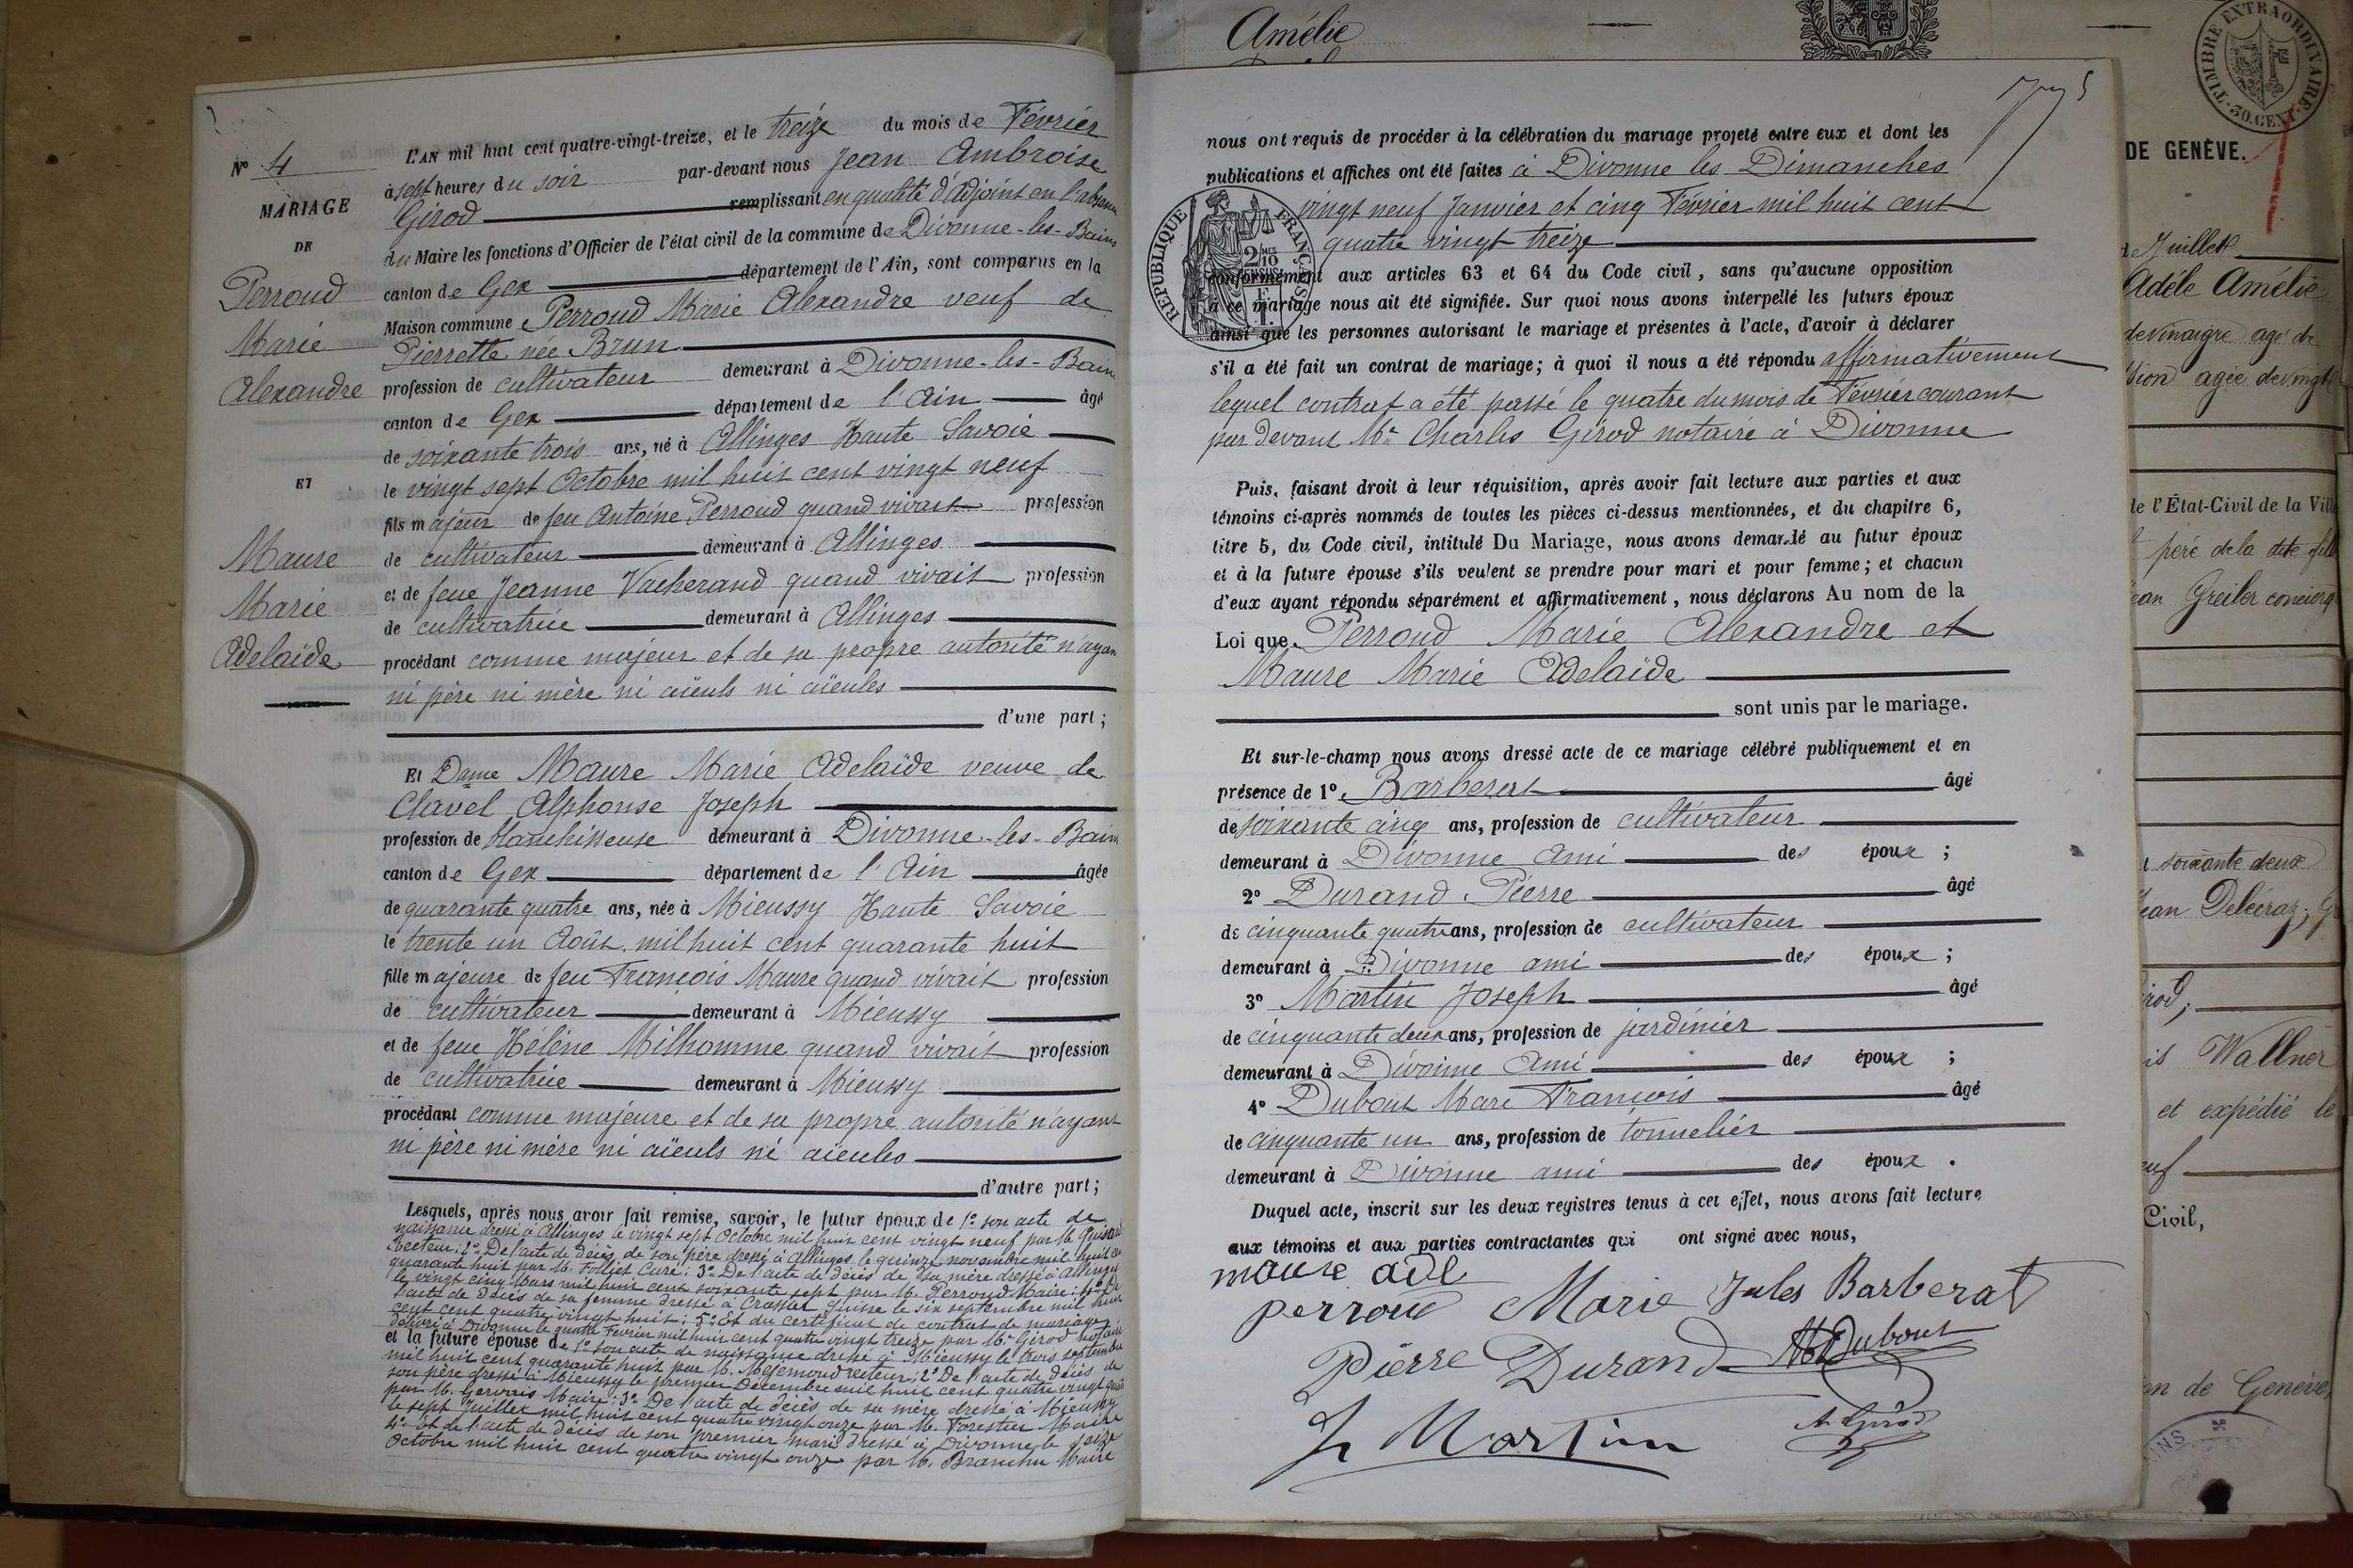 Nº 4
MARIAGE
DE
Perroud
Marie
Alexandre
ET
Maure
Marie
Adelaïde
L'AN mil huit cent quatre-vingt-treize, et le treize du mois de Février
à sept heures du soir par-devant nous Jean Ambroise
Girod remplissant en qualité d'Adjoint en l'absence
du Maire les fonctions d'Officier de l'état civil de la commune de Divonne-les-Bains
canton de Gex département de l'Ain, sont comparus en la
Maison commune Perroud Marie Alexandre veuf de
Pierrette née Brun
profession de cultivateur demeurant à Divonne-les-Bain
canton de Gex département de l'Ain âgé
de soixante trois ans, né à Allinges Haute Savoie
le vingt sept Octobre mil huit cent vingt neuf
fils majeur de feu Antoine Perroud quand vivait profession
de cultivateur demeurant à Allinges
et de feue Jeanne Vacherand quand vivait profession
de cultivatrice demeurant à Allinges
procédant comme majeur et de sa propre autorité n'ayan
ni père ni mère ni aïeuls ni aïeules
d'une part ;
Et Dame Maure Marie Adelaïde veuve de
Clavel Alphonse Joseph
profession de blanchisseuse demeurant à Divonne-les-Bain
canton de Gex département de l'Ain âgée
de quarante quatre ans, née à Mieussy Haute Savoie
le trente un Août mil huit cent quarante huit
fille majeure de feu François Maure quand vivait profession
de cultivateur demeurant à Mieussy
et de feue Hélène Milhomme quand vivait profession
de cultivatrice demeurant à Mieussy
procédant comme majeure et de sa propre autorité n'ayant
ni père ni mère ni aïeuls ni aïeules
d'autre part ;
Lesquels, après nous avoir fait remise, savoir, le futur époux de 1º son acte de
naissance dressé à Allinges le vingt sept Octobre mil huit cent vingt neuf par M.
Recteur ; 2º De l'acte de décès de son père dressé à Allinges le quinze novembre mil huit
quarante huit par M. Folliet Curé ; 3º De l'acte de décès de sa mère dressé à Allinges
le vingt cinq Mars mil huit cent soixante sept par M. Perroud Maire ; 4º De
l'acte de décès de sa femme dressé à Crassier Suisse le six septembre mil huit
cent cent quatre-vingt huit ; 5º Et du certificat de contrat de mariage
délivré à Divonne le quatre Février mil huit cent quatre vingt treize par Me Girod notaire
et la future épouse de 1º son acte de naissance dressé à Mieussy le trois septembre
mil huit cent quarante huit par M. Mejemond recteur ; 2º De l'acte de décès de
son père dressé à Mieussy le premier Décembre mil huit cent quatre vingt
par M. Gervais Maire ; 3º De l'acte de décès de sa mère dressé à Mieussy
le sept Juillet mil huit cent quatre vingt onze par M. Forestier Maire
4º Et de l'acte de décès de son premier mari dressé à Divonne le seize
Octobre mil huit cent quatre vingt onze par M. Branchu Maire
nous ont requis de procéder à la célébration du mariage projeté entre eux et dont les
publications et affiches ont été faites à Divonne les Dimanches
vingt neuf Janvier et cinq Février mil huit cent
quatre vingt treize
conformément aux articles 63 et 64 du Code civil, sans qu'aucune opposition
à ce mariage nous ait été signifiée. Sur quoi nous avons interpellé les futurs époux
ainsi que les personnes autorisant le mariage et présentes à l'acte, d'avoir à déclarer
s'il a été fait un contrat de mariage ; à quoi il nous a été répondu affirmativement
lequel contrat a été passé le quatre du mois de Février courant
par devant Me Charles Girod notaire à Divonne
Puis, faisant droit à leur réquisition, après avoir fait lecture aux parties et aux
témoins ci-après nommés de toutes les pièces ci-dessus mentionnées, et du chapitre 6,
titre 5, du Code civil, intitulé Du Mariage, nous avons demandé au futur époux
et à la future épouse s'ils veulent se prendre pour mari et pour femme ; et chacun
d'eux ayant répondu séparément et affirmativement, nous déclarons Au nom de la
Loi que Perroud Marie Alexandre et
Maure Marie Adelaïde
sont unis par le mariage.
Et sur-le-champ nous avons dressé acte de ce mariage célébré publiquement et en
présence de 1º Barberat âgé
de soixante cinq ans, profession de cultivateur
demeurant à Divonne ami des époux ;
2º Durand Pierre âgé
de cinquante quatre ans, profession de cultivateur
demeurant à Divonne ami des époux ;
3º Martin Joseph âgé
de cinquante deux ans, profession de jardinier
demeurant à Divonne Ami des époux ;
4º Dubout Marc François âgé
de cinquante un ans, profession de tonnelier
demeurant à Divonne ami des époux .
Duquel acte, inscrit sur les deux registres tenus à cet effet, nous avons fait lecture
aux témoins et aux parties contractantes qui ont signé avec nous,
maure adl
perroud Marie Jules Barberat
Pierre Durand M Dubout
J Martin A. Girod
REPUBLIQUE FRANÇAISE
2/10
Amélie
TIMBRE EXTRAORDINAIRE
30. CENT.
DE GENÈVE.
de Juillet
Adèle Amélie
de vinaigre agé de
agée de vingt
de l'État-Civil de la Vill
père de la dite fill
Greiler concierg
soixante deux
Jean Delécraz,
is Wallner
et expédié le
Civil,
de Genève,